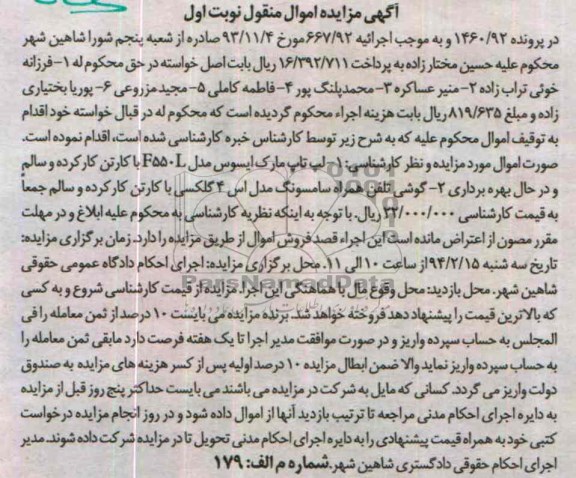 آگهی مزایده اموال منقول نوبت اول
در پرونده ۱۴۶۰/۹۲ و به موجب اجرائیه ۶۶۷/۹۲ مورخ ۹۳/۱۱/۴ صادره از شعبه پنجم شورا شاهین شهر
محکوم علیه حسین مختار زاده به پرداخت ۱۶/۳۹۲/۷۱۱ ریال بابت اصل خواسته در حق محکوم له ۱- فرزانه
خوئی تراب زاده ۲- منیر عساکره ۳- محمدپلنگ پور ۴- فاطمه کاملی ۵- مجید مزروعی ۶- پوریا بختیاری
زاده و مبلغ ۸۱۹/۶۳۵ ریال بابت هزینه اجراء محکوم گردیده است که محکوم له در قبال خواسته خود اقدام
به توقیف اموال محکوم علیه که به شرح زیر توسط کارشناس خبره کارشناسی شده است، اقدام نموده است.
صورت اموال مورد مزایده و نظر کارشناسی: ۱- لپ تاپ مارک ایسوس مدل F550L با کارتن کارکرده و سالم
و در حال بهره برداری ۲- گوشی تلفن همراه سامسونگ مدل اس ۴ گلکسی با کارتن کارکرده و سالم جمعاً
به قیمت کارشناسی ۳۲/۰۰۰/۰۰۰ ریال. با توجه به اینکه نظریه کارشناسی به محکوم علیه ابلاغ و در مهلت
مقرر مصون از اعتراض مانده است این اجراء قصد فروش اموال از طریق مزایده را دارد. زمان برگزاری مزایده:
تاریخ سه شنبه ۹۴/۲/۱۵ از ساعت ۱۰ الی ۱۱، محل برگزاری مزایده: اجرای احکام دادگاه عمومی حقوقی
شاهین شهر. محل بازدید: محل وقوع مال با هماهنگی این اجراء. مزایده از قیمت کارشناسی شروع و به کسی
که بالاترین قیمت را پیشنهاد دهد فروخته خواهد شد. برنده مزایده می بایست ۱۰ درصد از ثمن معامله را فی
المجلس به حساب سپرده واریز و در صورت موافقت مدیر اجرا تا یک هفته فرصت دارد مابقی ثمن معامله را
به حساب سپرده واریز نماید والا ضمن ابطال مزایده ۱۰ درصد اولیه پس از کسر هزینه های مزایده به صندوق
دولت واریز می گردد. کسانی که مایل به شرکت در مزایده می باشند می بایست حداکثر پنج روز قبل از مزایده
به دایره اجرای احکام مدنی مراجعه تا ترتیب بازدید آنها از اموال داده شود و در روز انجام مزایده درخواست
کتبی خود به همراه قیمت پیشنهادی را به دایره اجرای احکام مدنی تحویل تا در مزایده شرکت داده شوند. مدیر
اجرای احکام حقوقی دادگستری شاهین شهر. شماره م الف: ۱۷۹
ParsNamadData